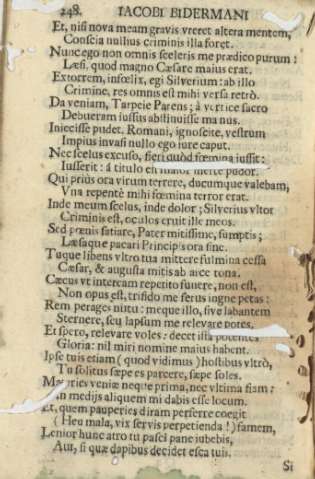 248. IACOBI BIDERMANI
Et, nisi nova meam gravis vreret altera mentem,
Conscia nullius criminis illa foret.
Nunc ego non omnis sceleris me prædico purum:
Læsi, quod magno Cæsare maius erat.
Extorrem, infelix, egi Silverium: ab illo
Crimine, res omnis est mihi versa retrò.
Da veniam, Tarpeie Parens; à vertice sacro
Debueram iussus abstinuisse manus.
Iniecisse pudet. Romani, ignoscite, vestrum
Impius invasi nullo ego iure caput.
Nec scelus excuso, fieri quòd fœmina iussit:
Iusserit: à titulo est maior pudor.
Qui priùs ora virum terrere, ducumque valebam,
Vna repentè mihi fœmina terror erat.
Inde meum scelus, inde dolor; Silverius vltor
Criminis est, oculos eruit ille meos.
Sed pœnis satiare, Pater mitissime, sumptis;
Læsaque pacari Principis ora sine.
Tuque libens vltro tua mittere fulmina cessa
Cæsar, & augusta mitis ab arce tona.
Cæcus vt inteream repetito funere, non est,
Non opus est, trifido me ferus ingne petas:
Rem perages nutu: meque illo, sive labantem
Sternere, seu lapsum me relevare potes.
Et spero, relevare voles: decet ista potentes
Gloria: nil miri nomine maius habent.
Ipse tuis etiam (quod vidimus) hostibus vltrò,
Tu solitus sæpe es parcere, sæpe soles.
Materies veniæ neque prima, nec vltima fiam:
In medijs aliquem mi dabis esse locum.
Et, quem pauperies diram perferre coegit
(Heu mala, vix servis perpetienda!) famem,
Lenior hunc atro tu pasci pane iubebis,
Aut, si quæ dapibus decidet esca tuis.
Si